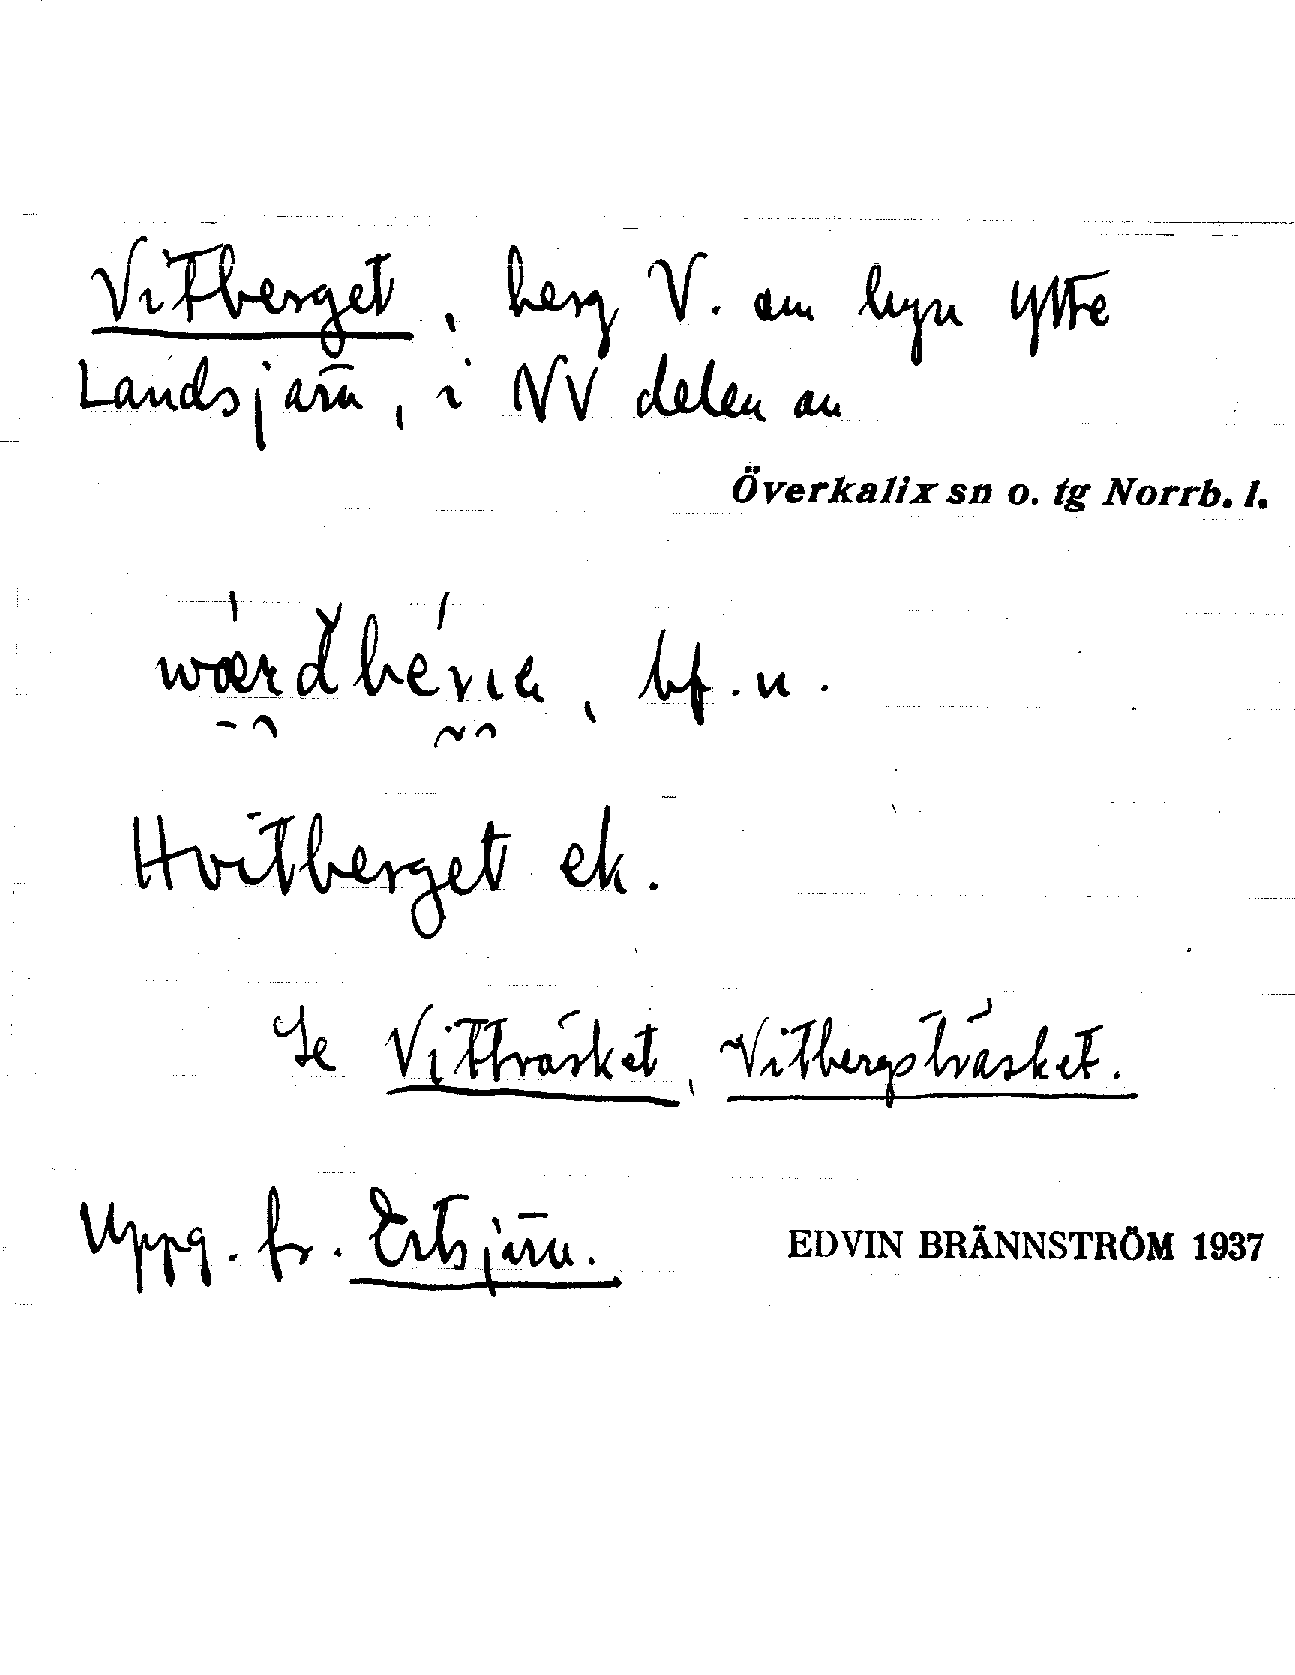 Vitberget, berg V. om byn Yttre
Landsjärn, i NV delen av
Överkalix sn o. tg Norrb. l.
bf. n.
Hvitberget ek.
Se Vitträsket, Vitbergsträsket.
Uppg. fr. Ertsjärn.
EDVIN BRÄNNSTRÖM 1937